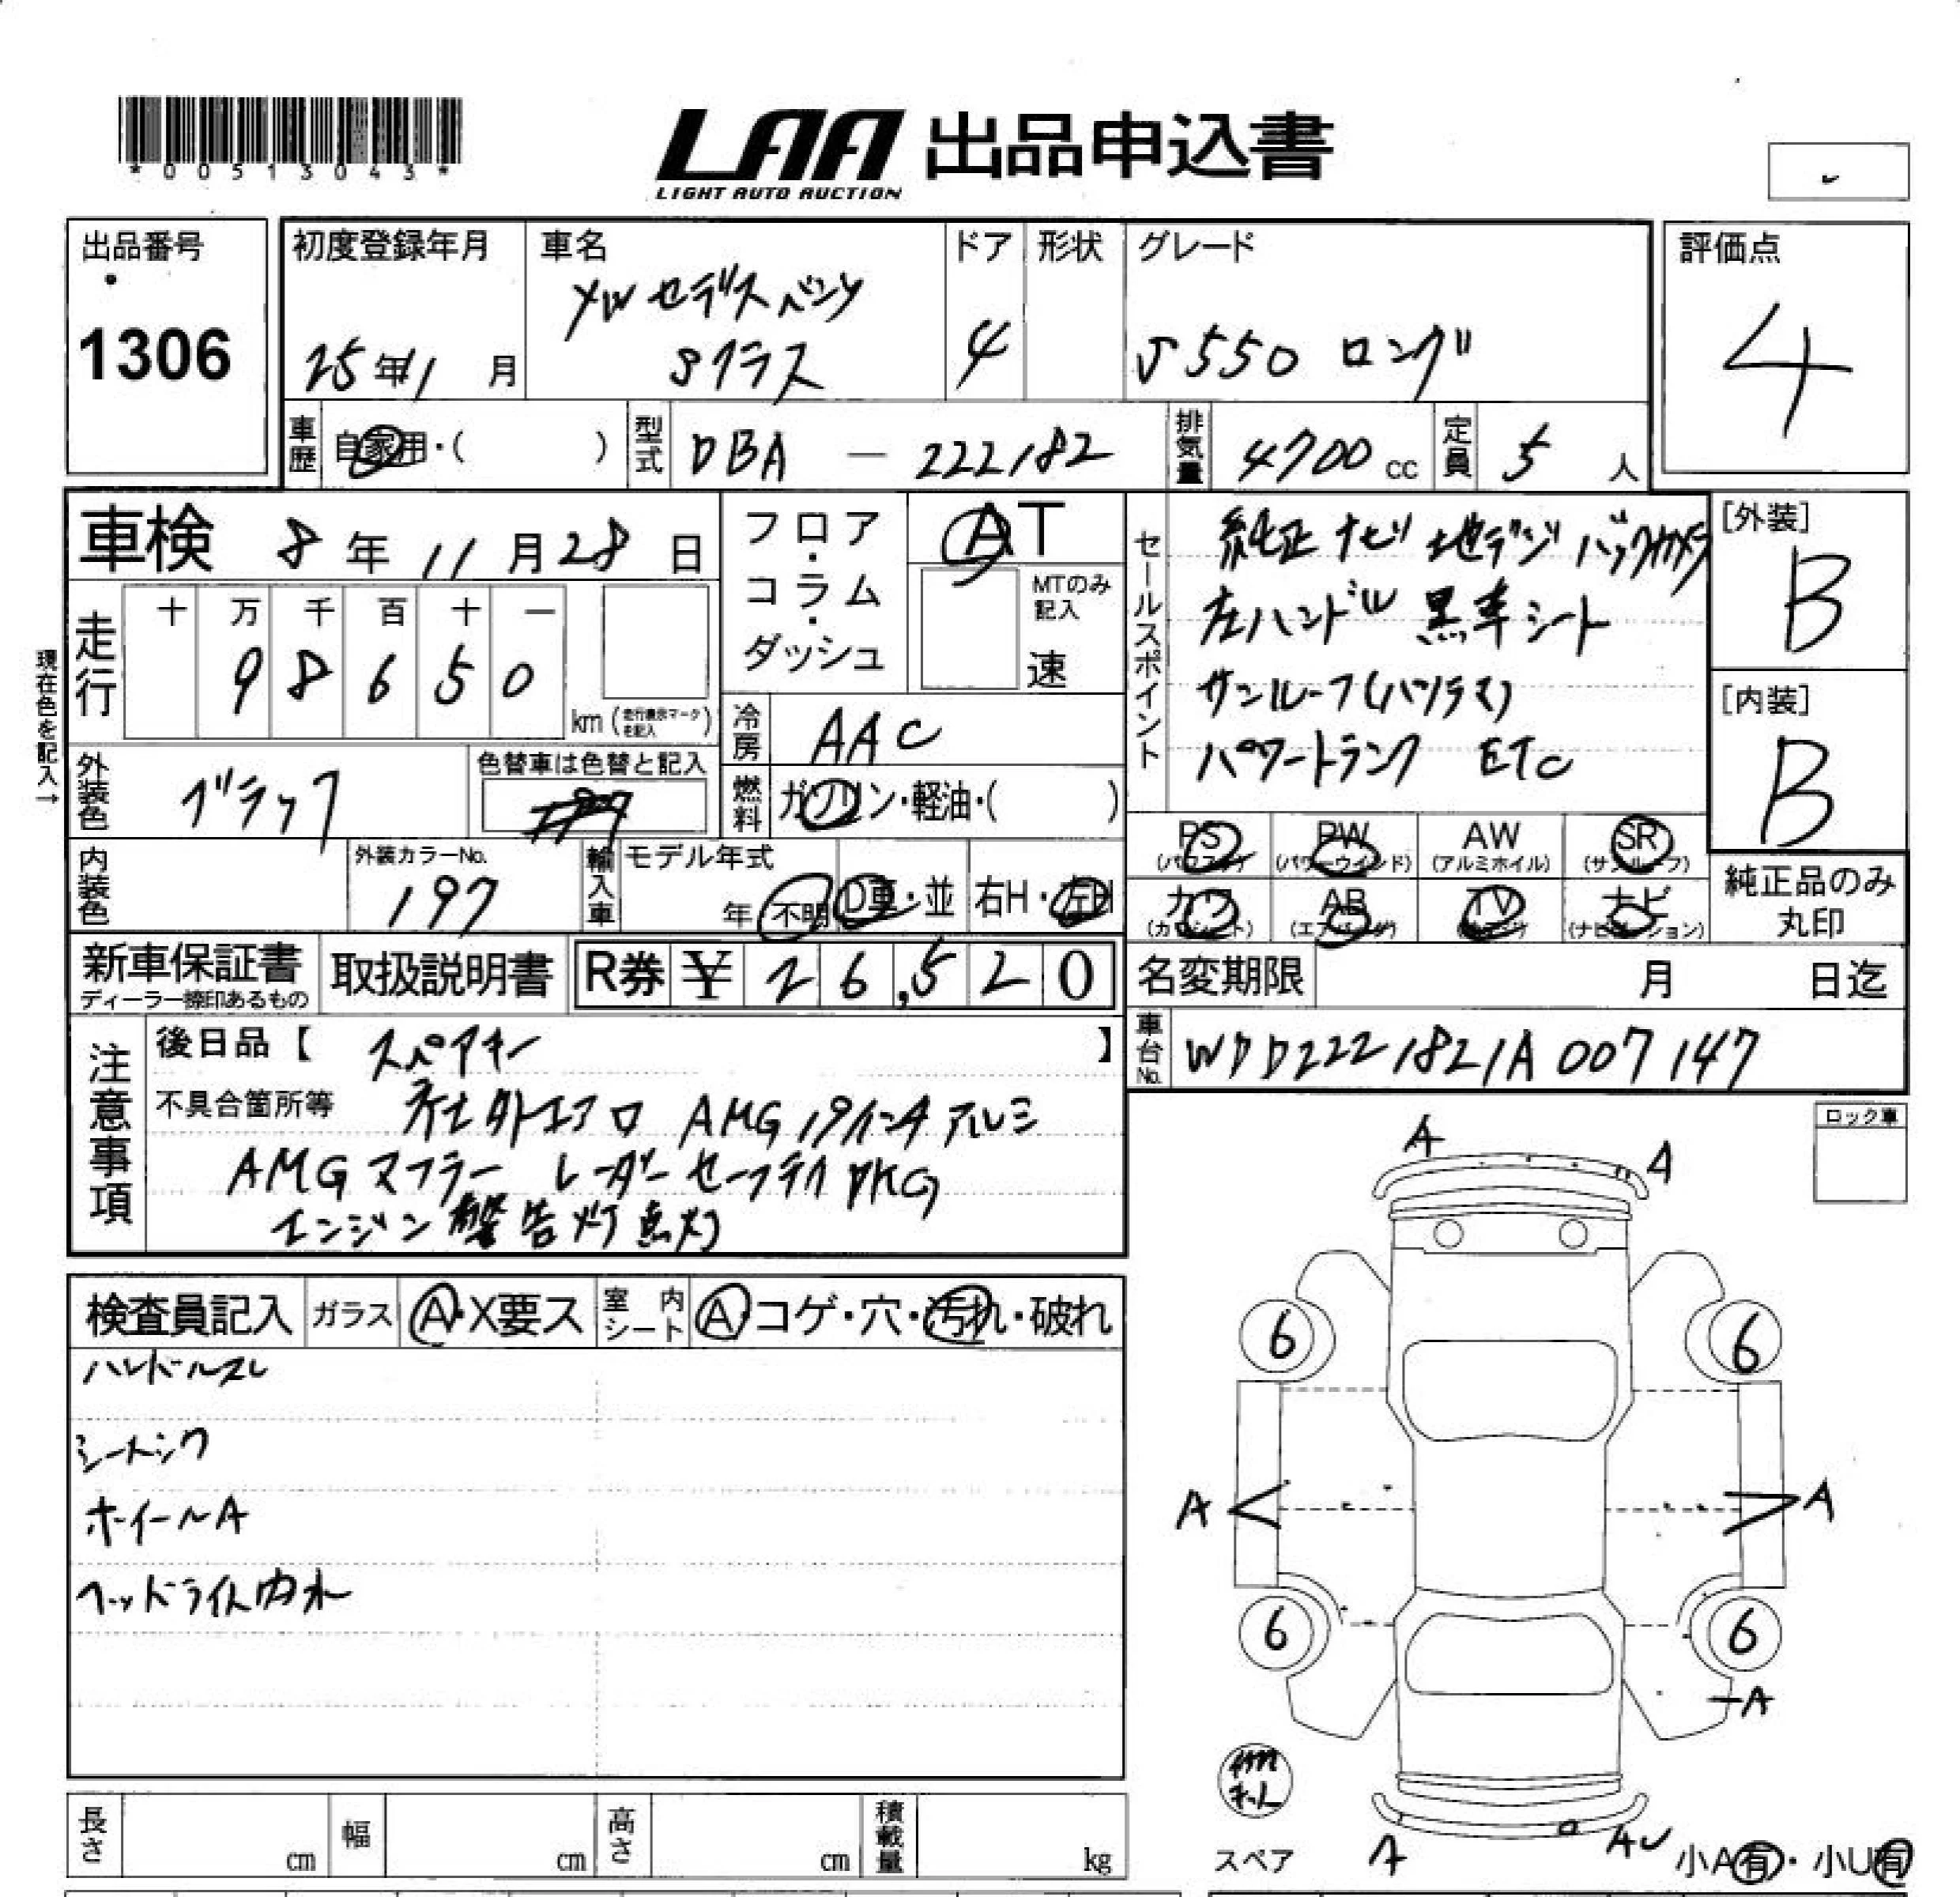 *00513043*
LAA 出品申込書
LIGHT AUTO AUCTION
出品番号
1306
初度登録年月
25年11月
車名
メルセデスベンツ
Sクラス
ドア
4
形状
グレード
S550 ロング
評価点
4
車歴
自家用・( )
型式
DBA — 222182
排気量
4700 cc
定員
5 人
車検 8年11月28日
フロア・コラム・ダッシュ
AT
MTのみ記入
速
セールスポイント
純正ナビ 地デジ バックカメラ
左ハンドル 黒革シート
サンルーフ(パノラマ)
パワートランク ETC
[外装]
B
[内装]
B
現在色を記入→
走行
十 万 千 百 十 一
9 8 6 5 0
km (走行表示マークを記入)
冷房
AAC
外装色
ブラック
色替車は色替と記入
燃料
ガソリン・軽油・( )
内装色
外装カラーNo.
197
輸入車
モデル年式
年 不明
D車・並
右H・左H
PS
(パワステ)
PW
(パワーウインド)
AW
(アルミホイル)
SR
(サンルーフ)
カワ
(カワシート)
AB
(エアバッグ)
TV
ナビ
(ナビゲーション)
純正品のみ
丸印
新車保証書
ディーラー捺印あるもの
取扱説明書
R券 ¥ 26,520
名変期限 月 日迄
注意事項
後日品【 スペアキー 】
不具合箇所等 社外エアロ AMG 19インチ アルミ
AMG マフラー レーダーセーフティ PKG
エンジン警告灯点灯
車台No.
WDD2221821A007147
ロック車
検査員記入
ガラス
A・X要ス
室内シート
A コゲ・穴・汚れ・破れ
ハンドルスレ
シートシワ
ホイールA
ヘッドライト内水
A
A
6
6
A
A
6
6
A
スペア
A
AU
小A有・小U有
長さ cm
幅 cm
高さ cm
積載量 kg